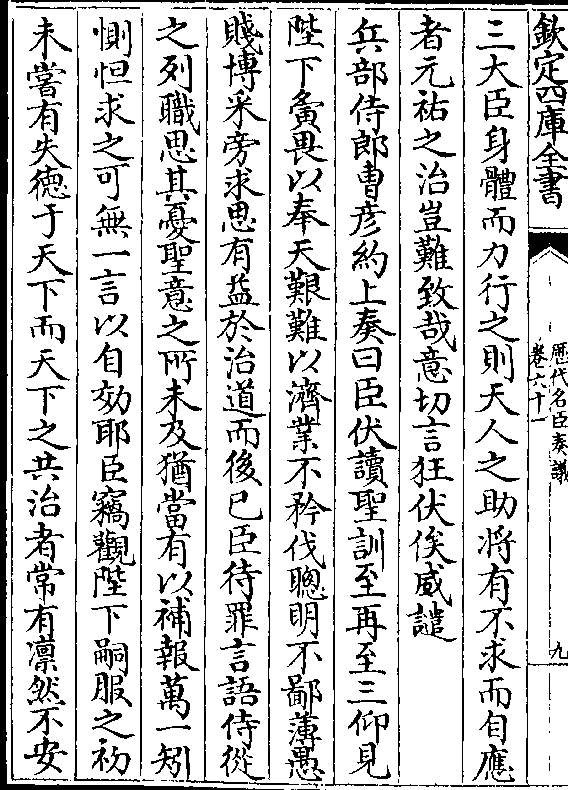 欽定四庫全書
歷代名臣奏議
卷六十一
九
三大臣身體而力行之則天人之助將有不求而自應
者元祐之治豈難致哉意切言狂伏俟威譴
兵部侍郎曹彥約上奏曰臣伏讀聖訓至再至三仰見
陛下夤畏以奉天艱難以濟業不矜伐聰明不鄙薄愚
賤博采旁求思有益於治道而後已臣待罪言語侍從
之列職思其憂聖意之所未及猶當有以補報萬一矧
惻怛求之可無一言以自効耶臣竊觀陛下嗣服之初
未嘗有失德于天下而天下之共治者常有凛然不安